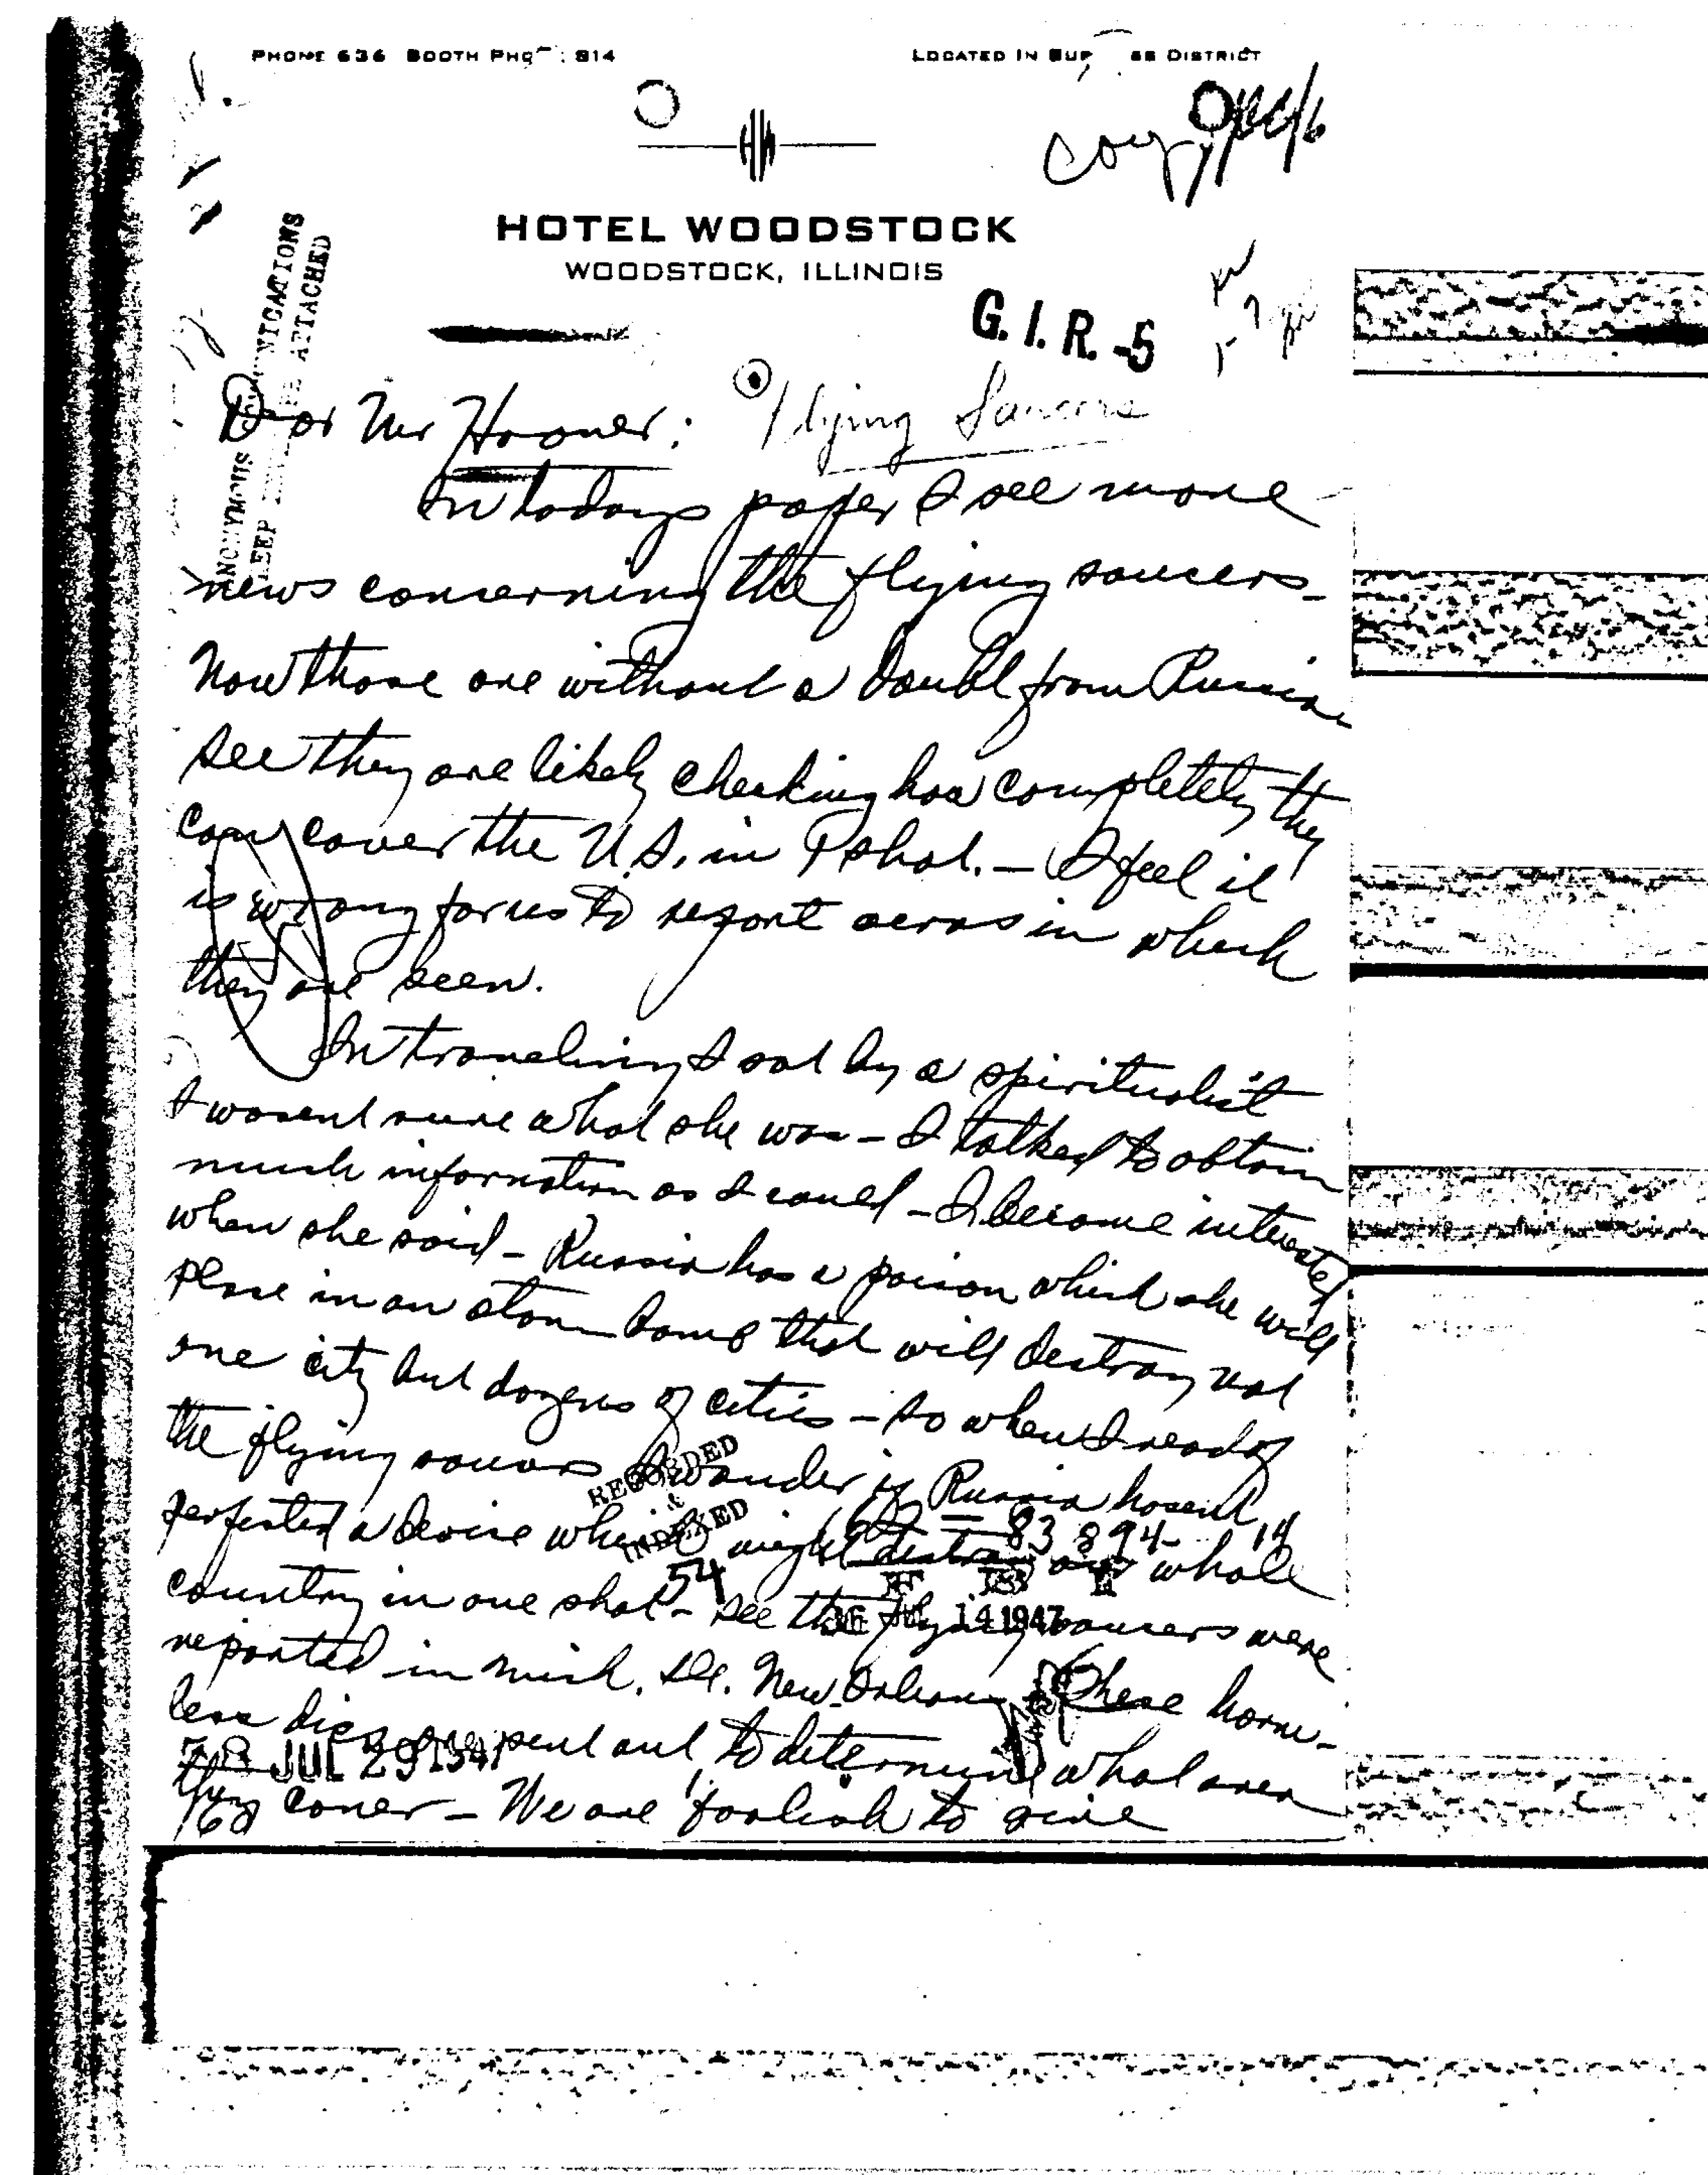 PHONE 636 BOOTH PHO : 814
LOCATED IN BU SS DISTRICT
copy
HOTEL WOODSTOCK
WOODSTOCK, ILLINOIS
G. I. R. -5
ANONYMOUS NICATIONS
ATTACHED
Flying Saucers
Dear Mr Hoover:
In todays paper I see more
news concerning the flying saucers -
Now those are without a doubt from Russia
see they are likely checking how completely they
can cover the U.S. in 1 shot. - I feel it
is wrong for us to report areas in which
they are seen.
In traveling I sat by a spiritualist
I wasent sure what she was - I talked to obtain
much information as I could - I became interested
when she said - Russia has a poison which she will
place in an atom bomb that will destroy not
one city but dozens of cities - so when I read of
the flying saucers I wonder if Russia hasent
perfected a devise which might destroy our whole
country in one shot - see the flying saucers were
reported in Mich. Ill. New Orleans These harm-
less discs are sent out to determine what area
they cover - We are foolish to give
RECORDED
&
INDEXED
62-83894-14
54
F B I
36 JUL 14 1947
58 JUL 29 1947